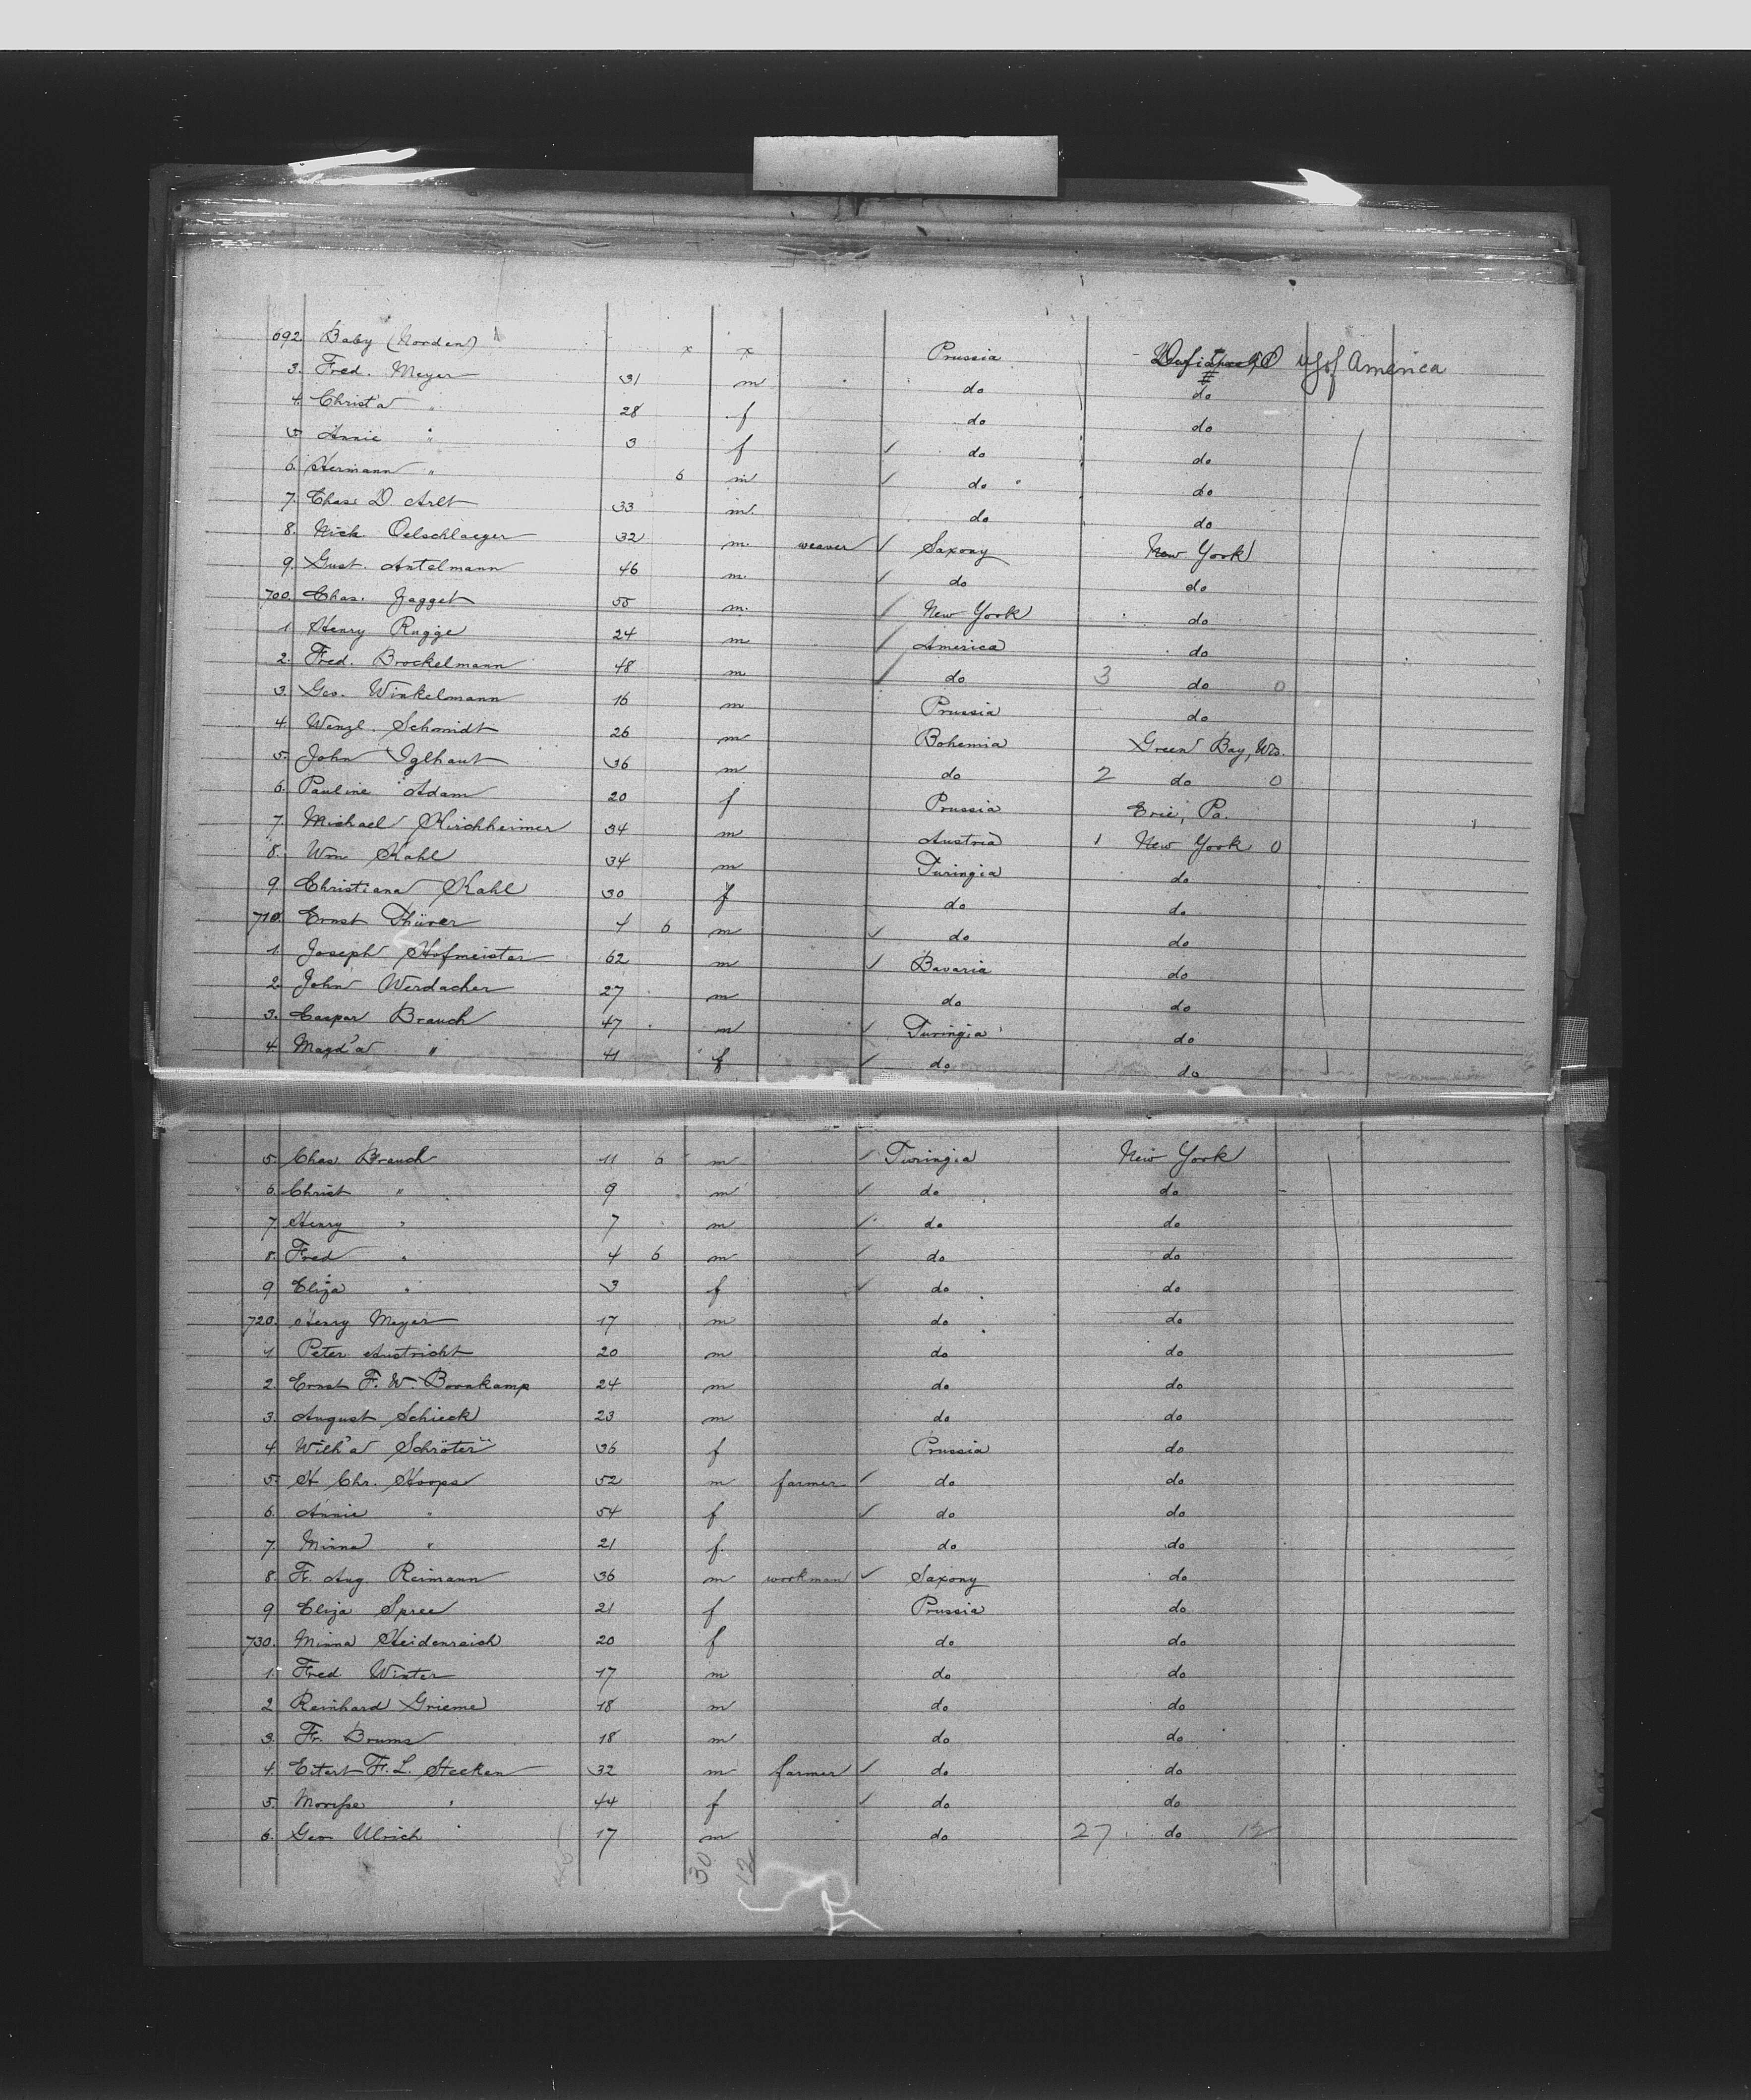 692. Baby (Norden) x x Prussia U S of America
3. Fred. Meyer 31 m do do
4. Christ'a " 28 f do do
5. Annie " 3 f ✓ do do
6. Hermann " 6 m ✓ do do
7. Chas. D. Arlt 33 m. do do
8. Nick. Oelschlaeger 32 m. weaver ✓ Saxony New York
9. Gust. Antelmann 46 m. ✓ do do
700. Chas. Jagget 55 m. ✓ New York do
1. Henry Rugge 24 m ✓ America do
2. Fred. Brockelmann 48 m ✓ do 3 do 0
3. Geo. Winkelmann 16 m Prussia do
4. Wenzl. Schmidt 26 m Bohemia Green Bay, Wis.
5. John Iglhaut 36 m do 2 do 0
6. Pauline Adam 20 f Prussia Erie, Pa.
7. Michael Kirchheimer 34 m Austria 1 New York 0
8. Wm Kahl 34 m Turingia do
9. Christiana Kahl 30 f do do
710. Ernst Thürer 4 6 m ✓ do do
1. Joseph Hofmeister 62 m ✓ Bavaria do
2. John Werdacher 27 m do do
3. Caspar Brauch 47 m ✓ Turingia do
4. Magd'a " 41 f ✓ do do
5. Chas Brauch 11 6 m ✓ Turingia New York
6. Christ " 9 m ✓ do do
7. Henry " 7 m ✓ do do
8. Fred " 4 6 m ✓ do do
9. Eliza " 3 f ✓ do do
720. Henry Meyer 17 m do do
1. Peter Austricht 20 m do do
2. Ernst F. W. Bornkamp 24 m do do
3. August Schieck 23 m do do
4. Wilh'a Schröter 36 f Prussia do
5. H Chr. Hoops 52 m farmer ✓ do do
6. Annie " 54 f ✓ do do
7. Minna " 21 f. do do
8. Fr. Aug. Reimann 36 m workman ✓ Saxony do
9. Eliza Spree 21 f Prussia do
730. Minna Heidenreich 20 f do do
1. Fred Winter 17 m do do
2. Reinhard Grieme 18 m do do
3. Fr. Brums 18 m do do
4. Eitert F. L. Stecken 32 m farmer ✓ do do
5. " 44 f ✓ do do
6. Geo Ulrich 17 m do 27 do 12
30 12